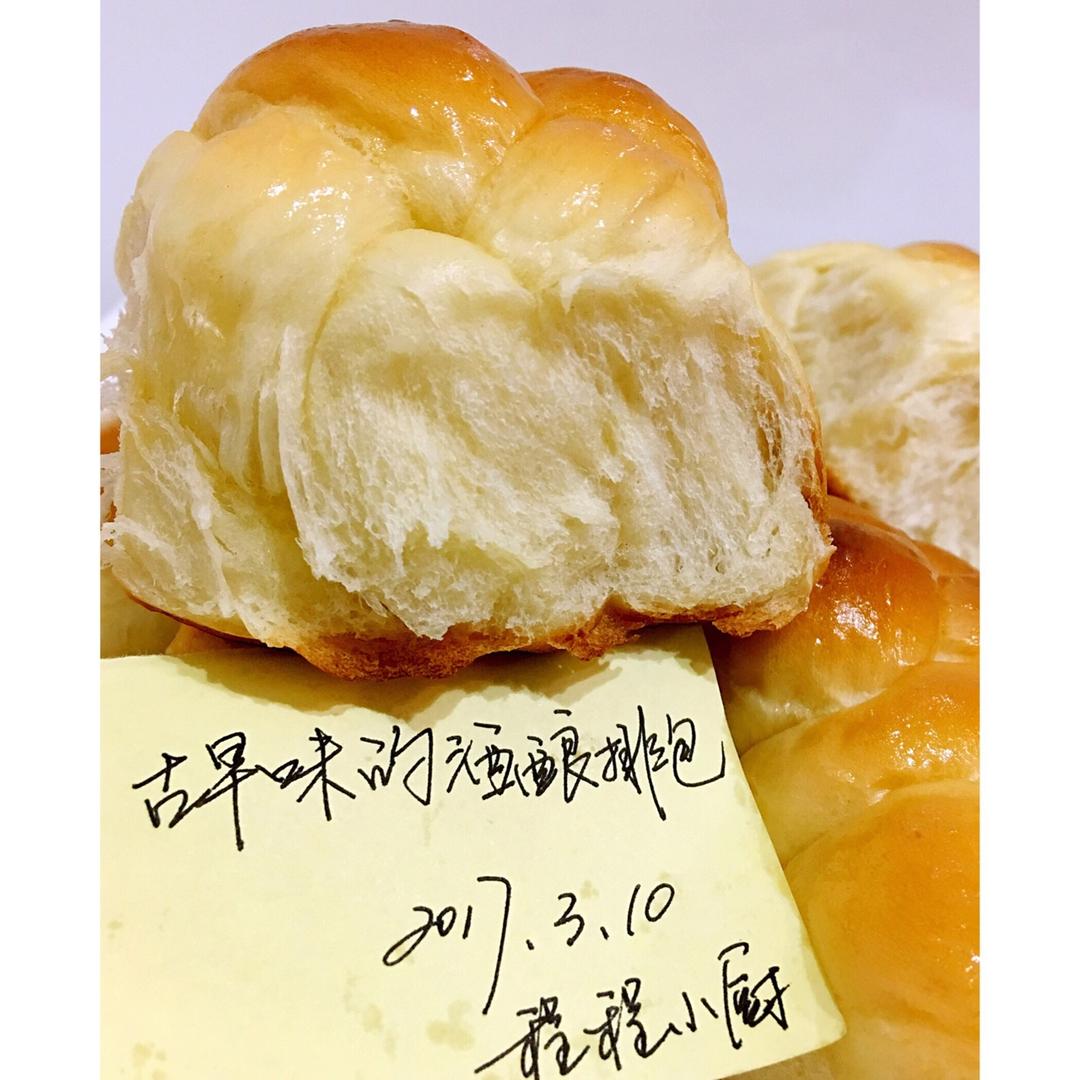 古早味的酒酿排包
2017.3.10
程程小厨